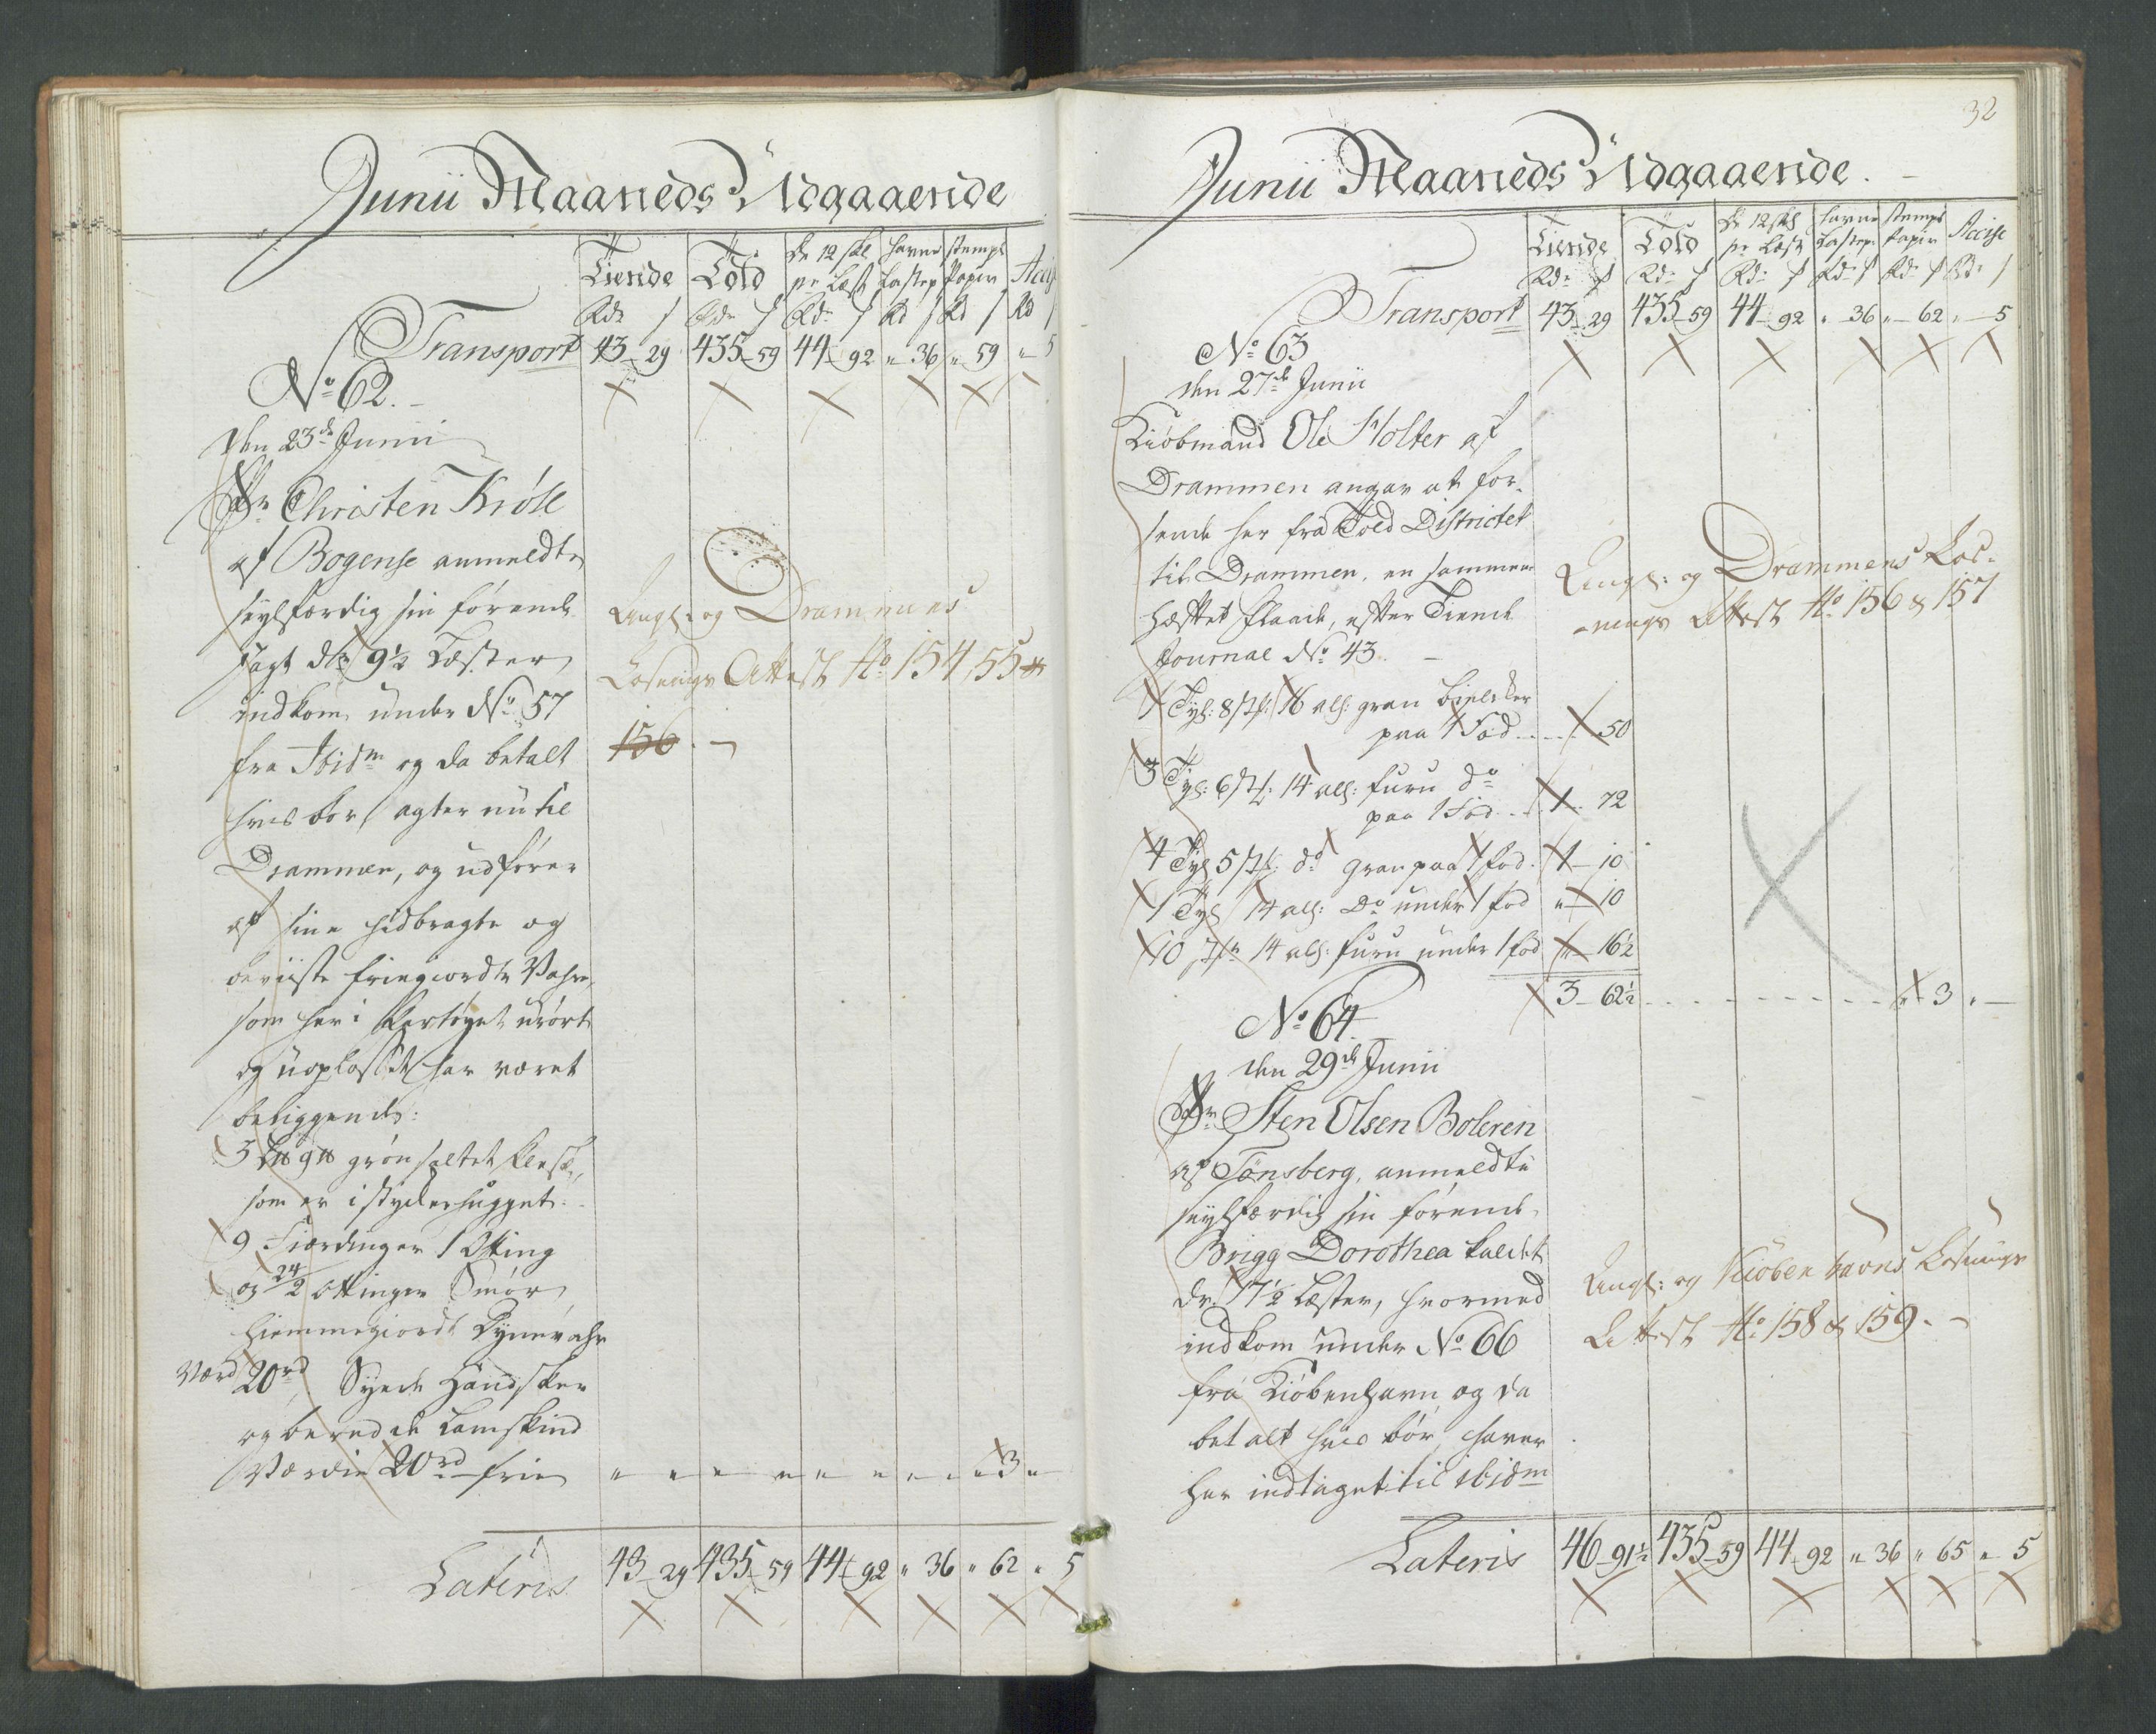 Junii Maaneds Udgaaende
Tiende Told De 12 skl pr Læst havne Lastep stempl Papir Accis
Rdr s Rdr s Rdr s Rd s Rd s Rd s
Transport 43 - 29 435 - 59 44 - 92 " 36 " 59 " 5
No 62. -
Den 23de Junii
Skr Christen Kröll
af Bogense anmeldte
seylfærdig sin förende
Jagt dr: 9½ Læster
indkom under No 57
fra Ibidm og da betalt
hvis bör, agter nu til
Drammen, og udförer
af sine hidbragte og
beviiste friegiordte Vahre,
som her i Fartöyet urört
og uoplosset har været
beliggende:
5 L℔ 9 ℔ grön saltet Flesk,
som er i stycker hugget.
9 Fierdinger 1 Otting
og 24/2 ottinger Smör
hiemmegiordt Kynevahr
Værd 20rd, Syede Handsker
og beredde Lamskind
Værdie 20rd frie " " " " " " " " 3 "
Angf: og Drammens
Losnings Attest No 154, 55 &
156. -
Lateris 43 - 29 435 - 59 44 - 92 " 36 " 62 " 5
32
Junii Maaneds Udgaaende. -
Tiende Told De 12 skl pr Læst havne Lastepe stempl Papir Accise
Rdr s Rdr s Rdr s Rdr s Rdr s Rdr s
Transport 43 - 29 435 - 59 44 - 92 " - 36 " - 62 " - 5
No 63
den 27de Junii
Kiöbmand Ole Holter af
Drammen angav at for-
sende her fra Told Districtet
til Drammen, en sammen-
hæftet Flaade, efter Tiende
Journal No 43. -
1 Tyl: 8 st: 16 al: gran bielcker
paa 1 Fod .... " 50
3 Tyl: 6 st: 14 al: furu do
paa 1 Fod ... 1 - 72
4 Tyl 5 st: do gran paa 1 fod. 1 - 10
1 Tyl 14 al: Do under 1 fod " - 10
10 st 14 al: furu under 1 fod " - 16½
3 - 62½ - - - - - - - - - " 3 " -
Angf: og Drammens Los-
nings Attest No 156 & 157
No 64
den 29de Junii
Skr Sten Olsen Boleren
af Tönsberg, anmeldte
seylfærdig sin förende
Brigg Dorothea kaldet
dr. 17½ Læster, hvormed
indkom under No 66
fra Kiöbenhavn, og da
betalt hvis bör, haver
her indtaget til ibidm
Angf: og Kiöbenhavns Losnings
Attest No 158 & 159. -
Lateris 46 - 91½ 435 - 59 44 - 92 " 36 " 65 " 5